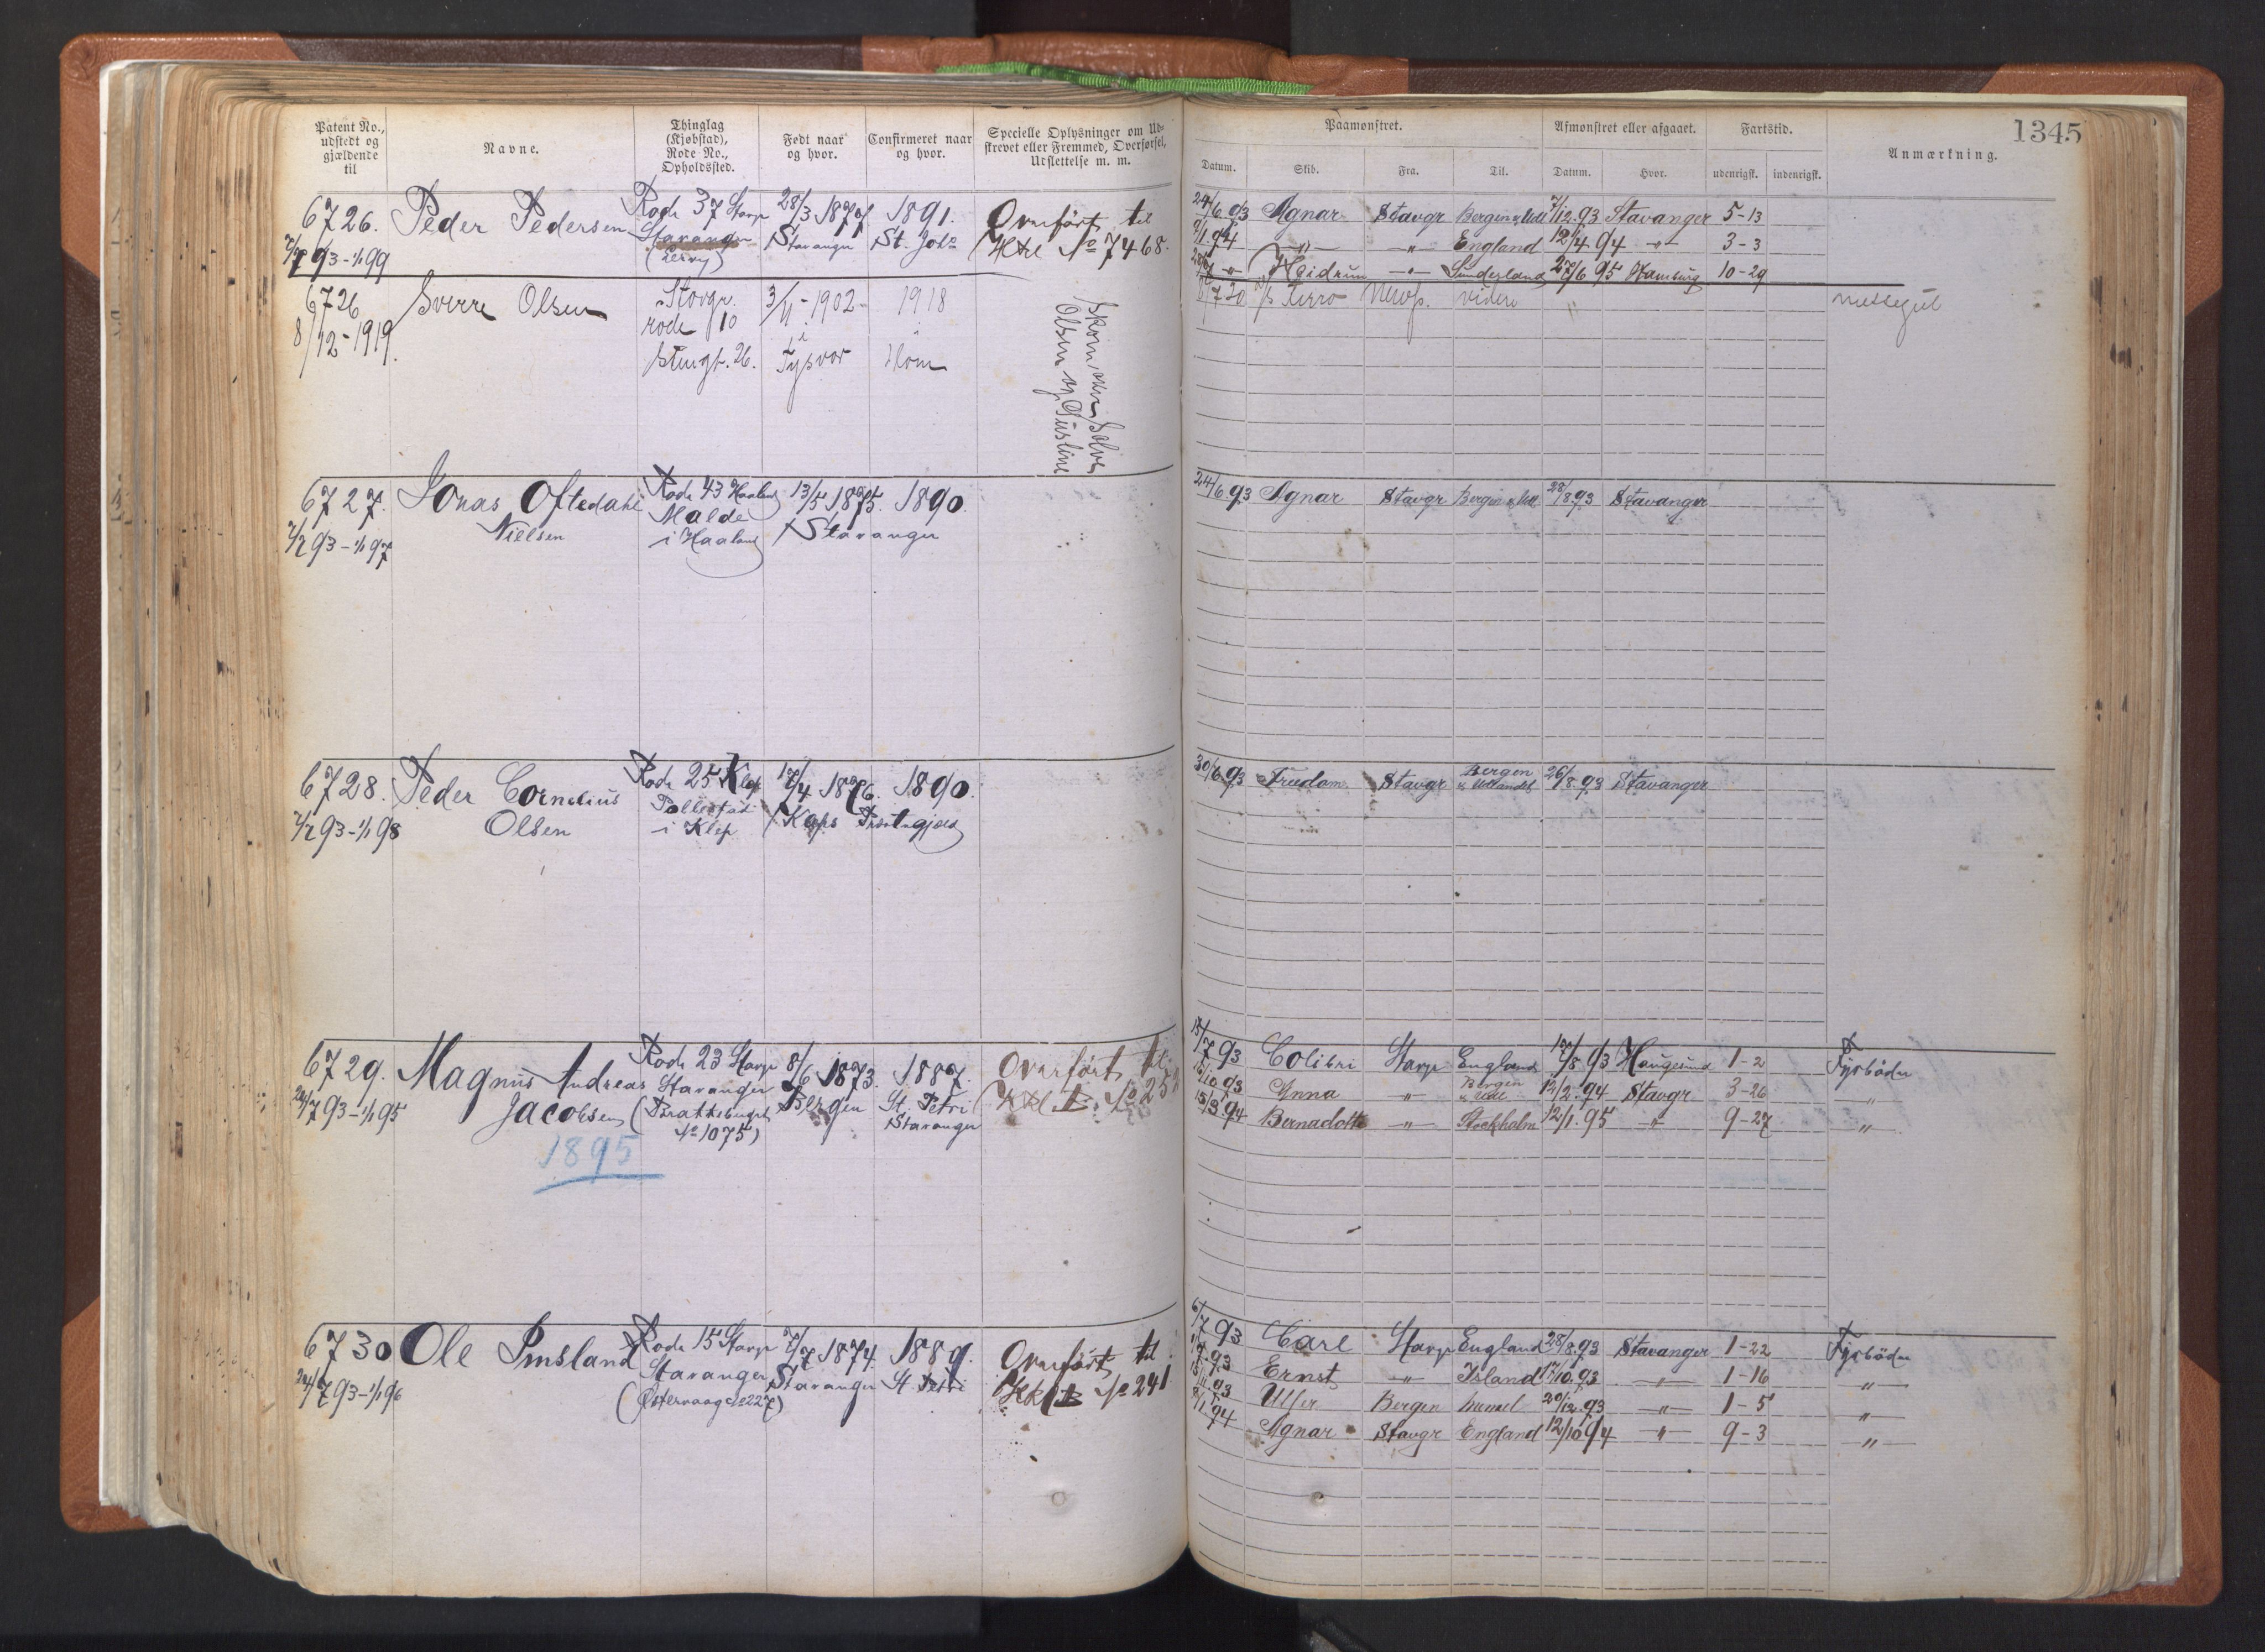 1345
Patent No., udstedt og gjældende til
Navne.
Thinglag (Kjøbstad), Rode No., Opholdssted.
Født naar og hvor.
Confirmeret naar og hvor.
Specielle Oplysninger om Udskrevet eller Fremmed, Overførsel, Udslettelse m. m.
Paamønstret.
Afmønstret eller afgaaet.
Fartstid.
Anmærkning.
Datum. Skib. Fra. Til. Datum. Hvor. udenrigsk. indenrigsk.
6726. Peder Pedersen Rode 37 Stavgr 28/3 1877 1891. Overført til
93-1/1 99 Stavanger Stavanger St. Joh= No 7468.
24/6 93 Agnar Stavgr Bergen 7/12.93 Stavanger 5-13
94 -"- -"- England 12/4 94 -"- 3-3
Heidrun -"- Sunderland 27/6 95 Hamburg 10-29
6726 Sverre Olsen Stavgr. 3/4-1902- 1918
8/12-1919. rode 10 i
26. Tysvær
Olsen og
30 videre
6727. Jonas Oftedahl Rode 43 Haaland 13/5 1875. 1890.
Nielsen Malde Stavanger
93-1/1 97 i Haaland
24/6 93 Agnar Stavgr Bergen 28/8 93 Stavanger
6728. Peder Cornelius Rode 25 Klep 17/4 1876. 1890.
93-1/1 98 Olsen i Klep
30/6 93 Freedom Stavgr Bergen 26/8.93 Stavanger
u Utlandet
6729. Magnus Andreas Rode 23 Stavgr 8/6 1873. 1887. Overført til
24/7 93-1/1 95 Jacobsen Stavanger Bergen St. Petri
No 1075) Stavanger
1895
15/7 93 Colibri Stavgr England 17/8 93 Haugesund 1-2 Fyrbøder
93 Anna -"- Bergen 12/2.94 Stavgr 3-26 -"-
15/3.94 Bernadotte -"- Stockholm 12/1.95 -"- 9-27 -"-
6730 Ole Imsland Rode 15 Stavgr 7/7 1874. 1889. Overført til
24/7 93-1/1 96 Stavanger Stavanger St. Petri No 241
(Østervaag No 227)
6/7 93 Carl Stavgr England 28/8.93 Stavanger 1-22 Fyrbøder
93 Ernst -"- Island 17/10.93 -"- 1-16 -"-
93 Ulfer Bergen 20/12.93 -"- 1-5 -"-
94 Agnar Stavgr England 12/10 94 -"- 9-3 -"-